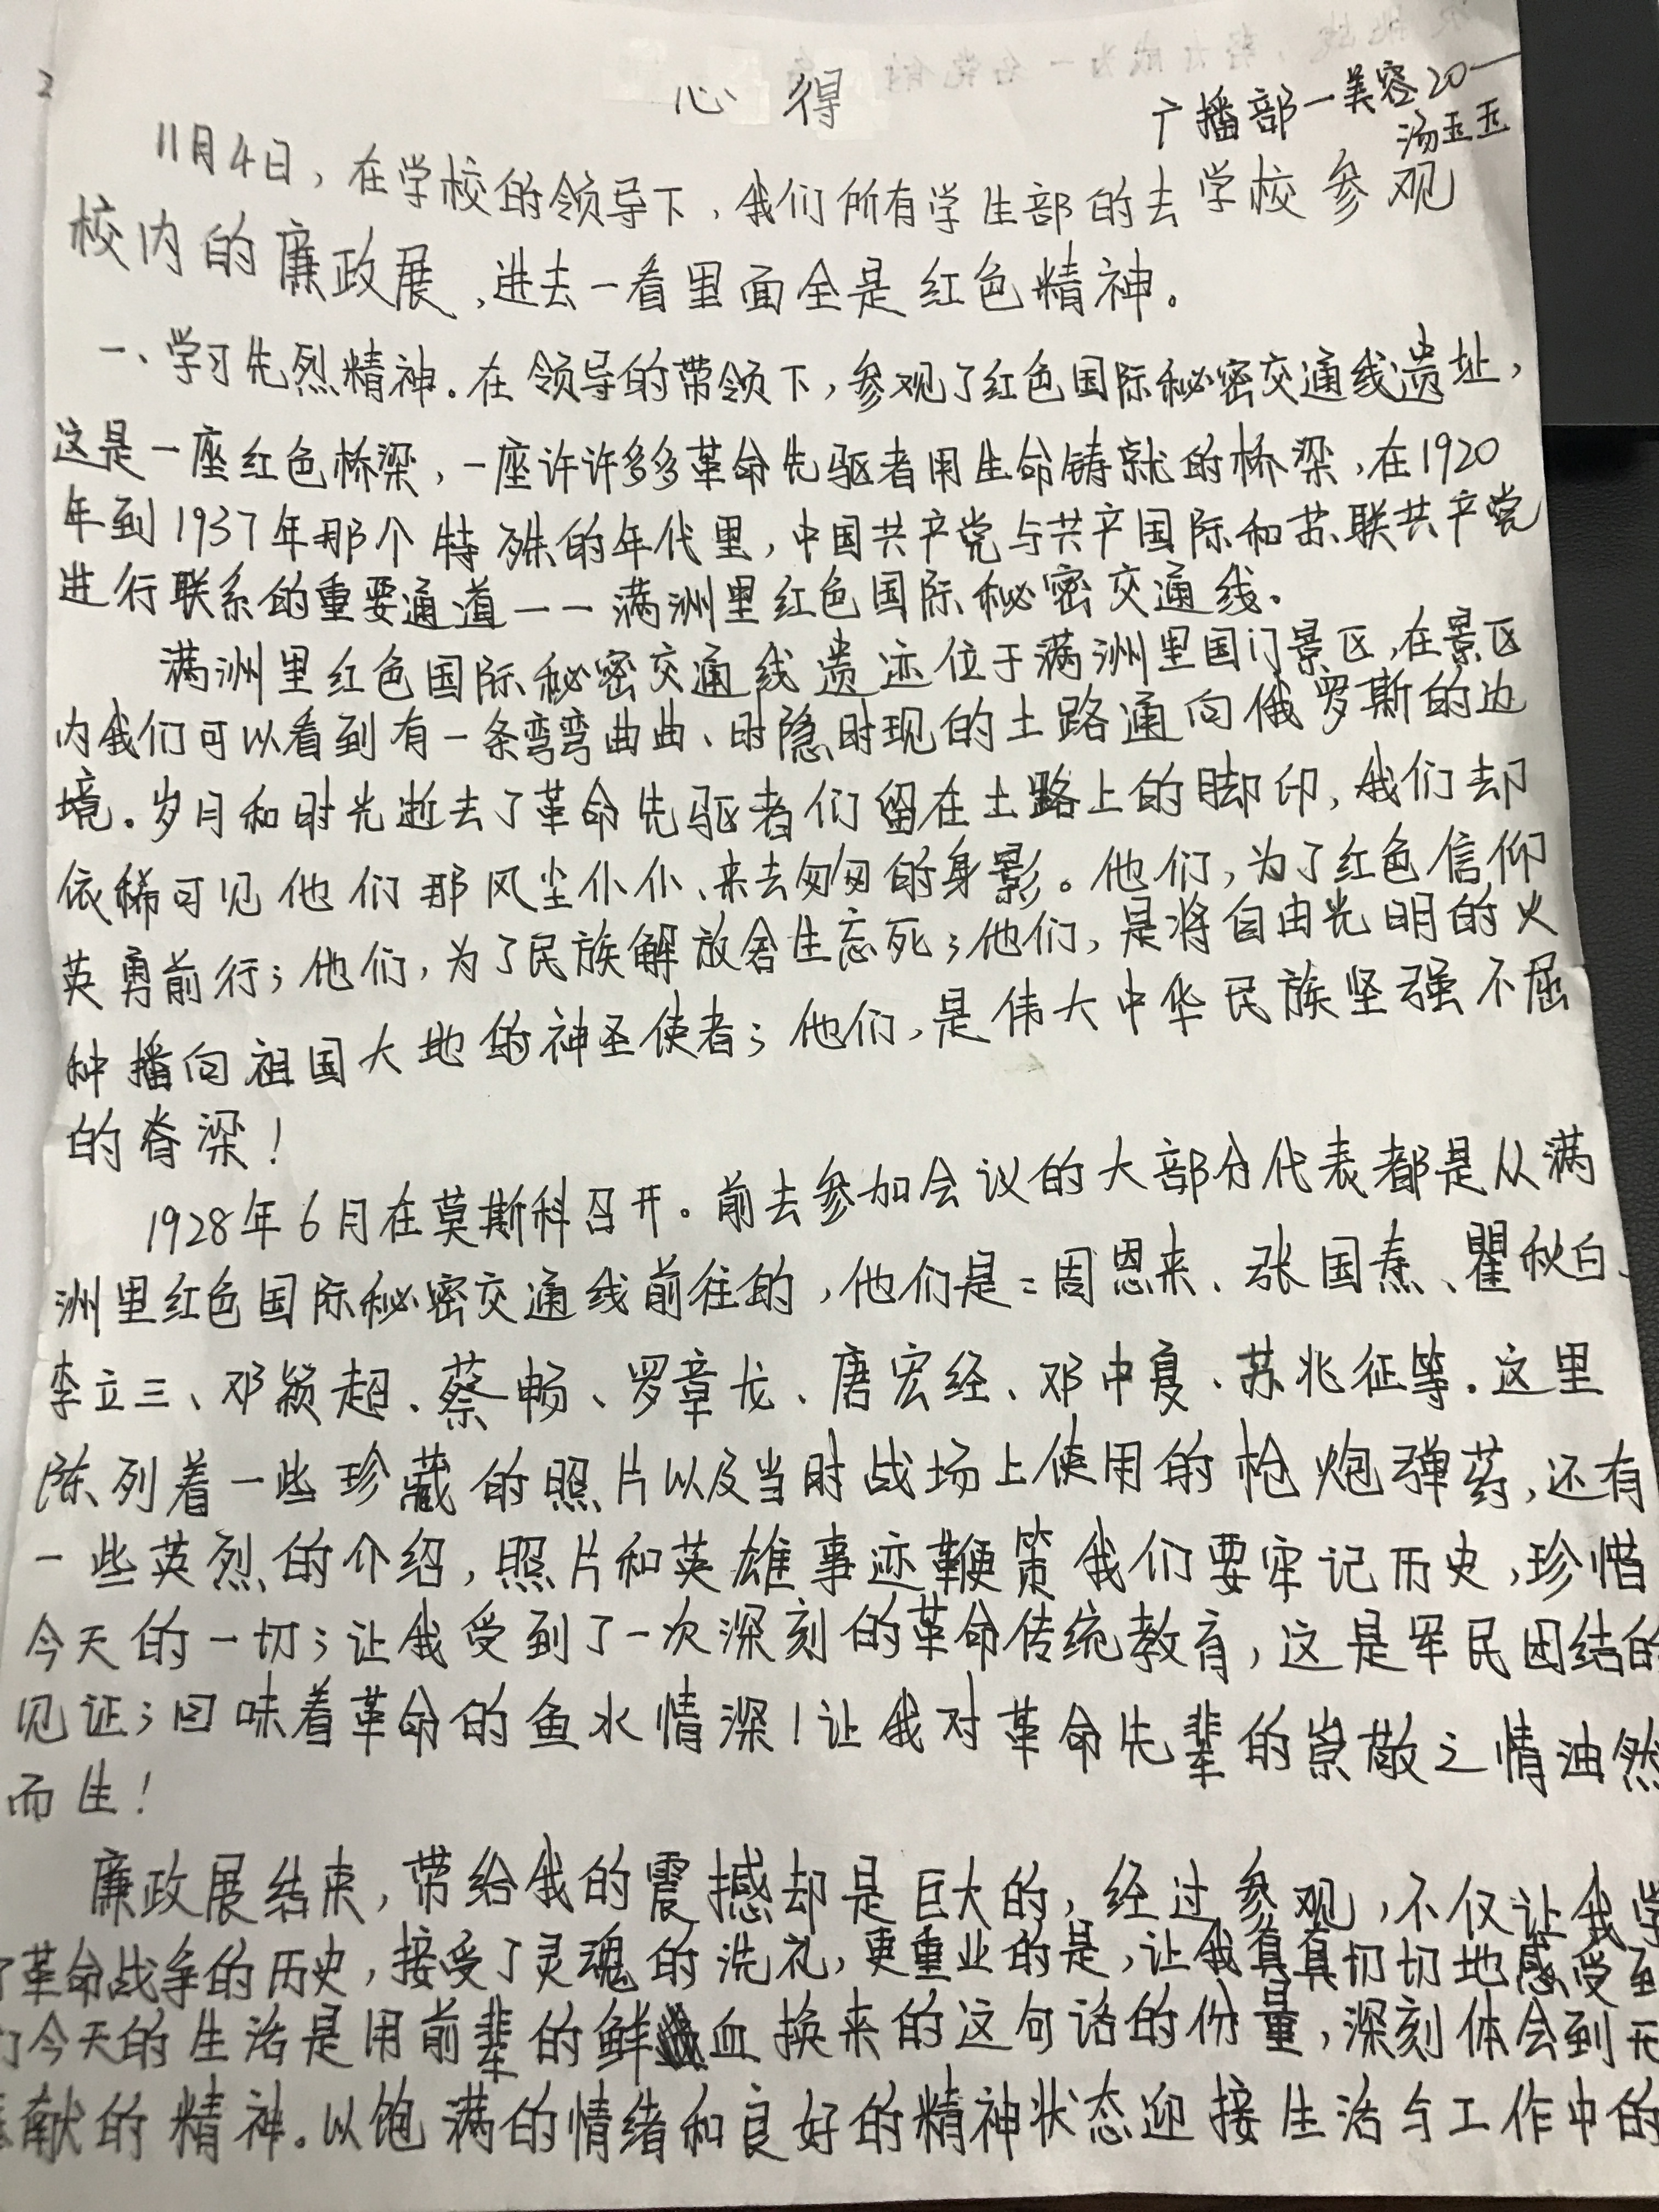 2
心得
广播部一美容20一
汤玉玉
11月4日，在学校的领导下，我们所有学生部的去学校参观
校内的廉政展，进去一看里面全是红色精神。
一、学习先烈精神.在领导的带领下，参观了红色国际秘密交通线遗址，
这是一座红色桥梁，一座许许多多革命先驱者用生命铸就的桥梁，在1920
年到1937年那个特殊的年代里，中国共产党与共产国际和苏联共产党
进行联系的重要通道——满洲里红色国际秘密交通线.
满洲里红色国际秘密交通线遗迹位于满洲里国门景区，在景区
内我们可以看到有一条弯弯曲曲、时隐时现的土路通向俄罗斯的边
境。岁月和时光逝去了革命先驱者们留在土路上的脚印，我们却
依稀可见他们那风尘仆仆、来去匆匆的身影。他们，为了红色信仰
英勇前行；他们，为了民族解放舍生忘死；他们，是将自由光明的火
种播向祖国大地的神圣使者；他们，是伟大中华民族坚强不屈
的脊梁！
1928年6月在莫斯科召开。前去参加会议的大部分代表都是从满
洲里红色国际秘密交通线前往的，他们是：周恩来、张国焘、瞿秋白、
李立三、邓颖超、蔡畅、罗章龙、唐宏经、邓中夏、苏兆征等.这里
陈列着一些珍藏的照片以及当时战场上使用的枪炮弹药，还有
一些英烈的介绍，照片和英雄事迹鞭策我们要牢记历史，珍惜
今天的一切；让我受到了一次深刻的革命传统教育，这是军民团结的
见证；回味着革命的鱼水情深！让我对革命先辈的崇敬之情油然
而生！
廉政展结束，带给我的震撼却是巨大的，经过参观，不仅让我学
了革命战争的历史，接受了灵魂的洗礼，更重业的是，让我真真切切地感受到
们今天的生活是用前辈的鲜血换来的这句话的份量，深刻体会到无
献的精神。以饱满的情绪和良好的精神状态迎接生活与工作中的